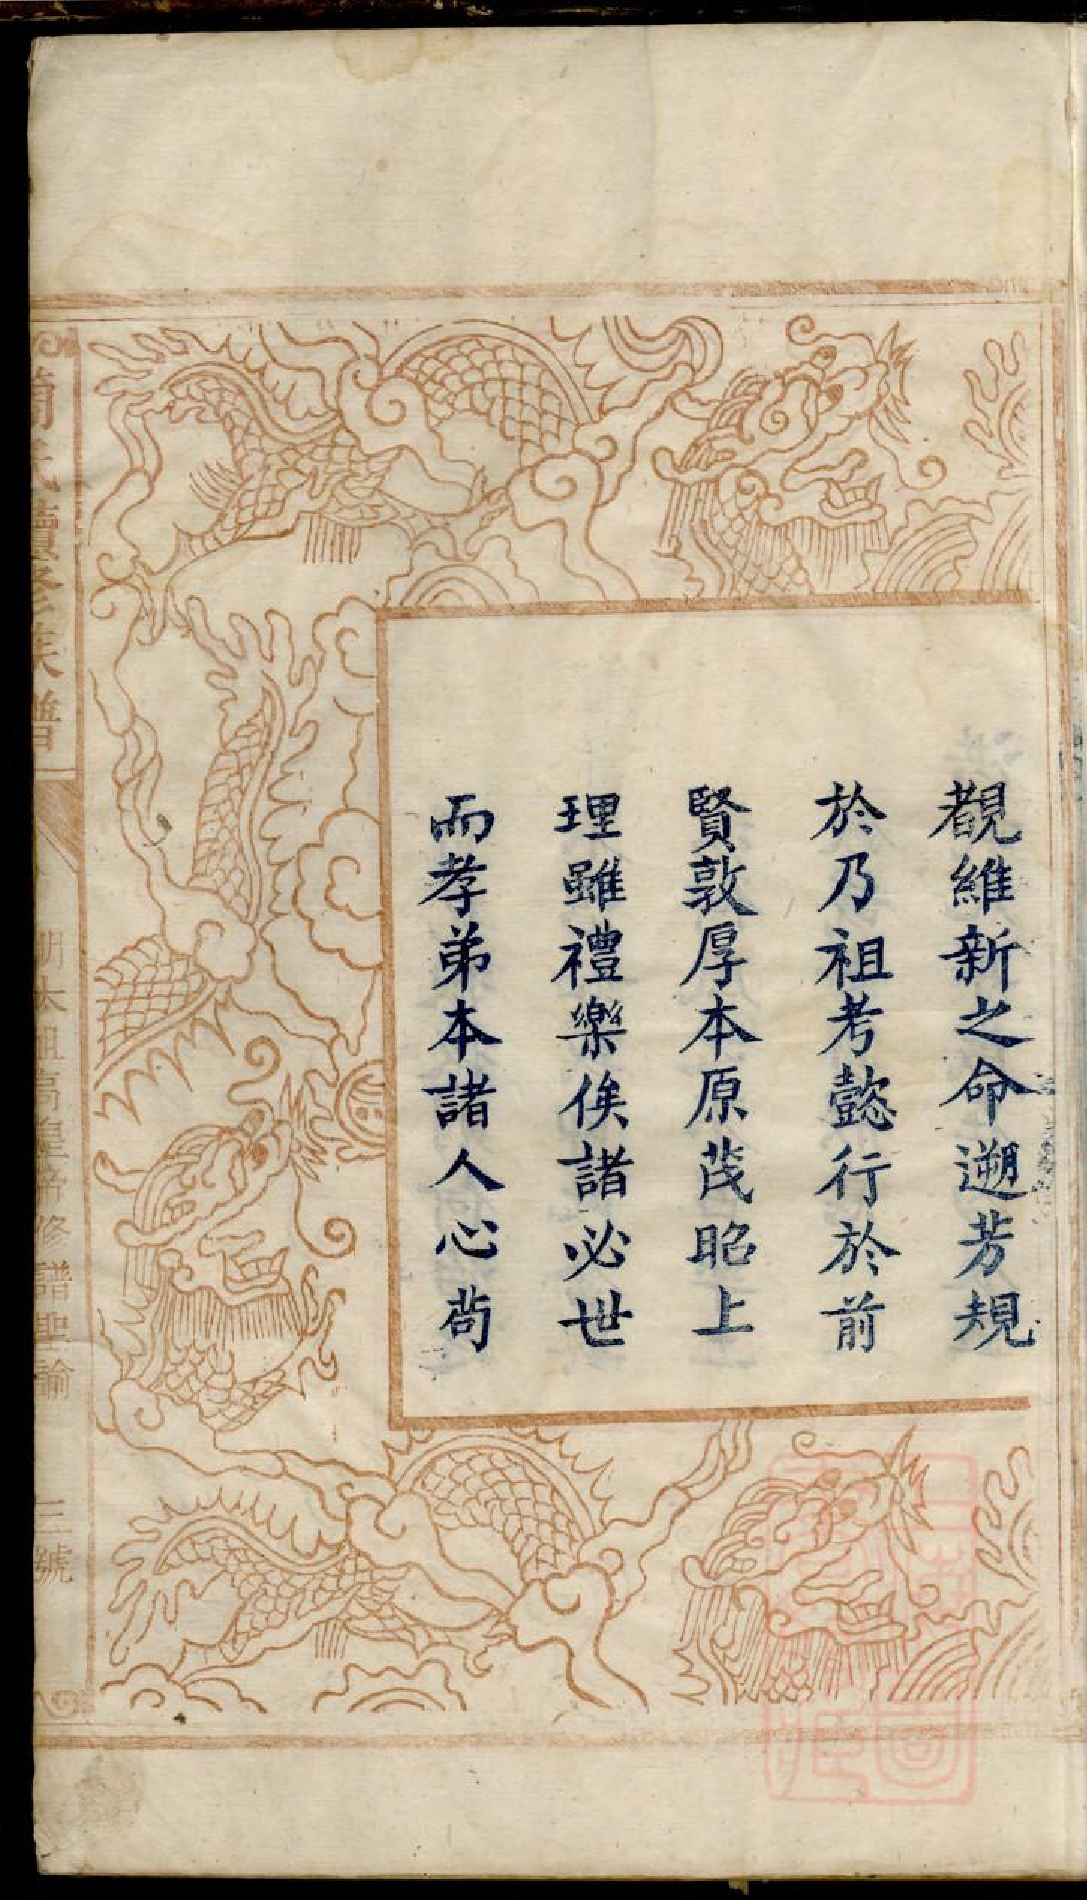 覩維新之命遡芳規
於乃祖考懿行於前
賢敦厚本原茂昭上
理雖禮樂俟諸必世
而孝弟本諸人心苟
續修族譜
明太祖高皇帝修譜聖諭
三號